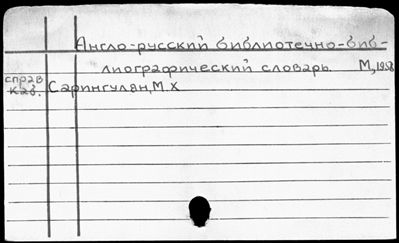 Англо-русский библиотечно-биб-
лиографический словарь. М, 1958
справ
каб. Сарингулян, М.Х